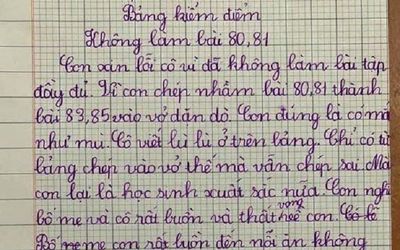 Bảng kiểm điểm
Không làm bài 80,81
Con xin lỗi cô vì đã không làm bài tập
đầy đủ. Vì con chép nhầm bài 80,81 thành
bài 83,85 vào vở dặn dò. Con đúng là có mắt
như mù. Cô viết lù lù ở trên bảng. Chỉ có từ
bảng chép vào vở thế mà vẫn chép sai. Mà
con lại là học sinh xuất sắc nữa. Con nghĩ
bố mẹ và cô rất buồn và thất vọng về con.
Bố mẹ con rất buồn đến nỗi ăn không